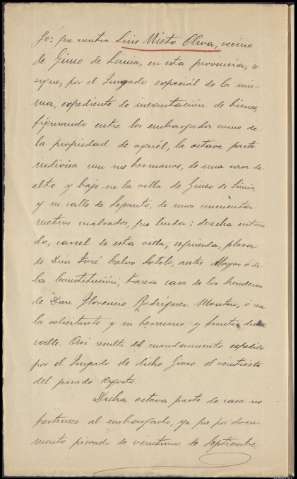 que contra Luis Nieto Oliva, vecino
de Ginzo de Limia, en esta provincia, se
sigue, por el Juzgado especial de la mis
ma, expediente de incautación de bienes,
figurando entre los embargados como de
la propiedad de aquel, la octava parte
indivisa con sus hermanos, de una casa de
alto y bajo en la villa de Ginzo de Limia
y su calle de de unos
metros cuadrados, que linda: derecha entran
do, carcel de esta villa, izquierda, plaza
de Don José Calvo Sotelo, antes Mayor o de
la Constitución, trasera casa de los herederos
de Don Florencio Rodriguez y
la solicitante y su hermano y frente, dicha
calle. Así resulta del mandamiento expedido
por el Juzgado de dicho Ginzo el veintiseis
del pasado Agosto.
Dicha octava parte de casa no
pertenece al embargado, ya que por docu
mento privado de veintiuno de Septiembre